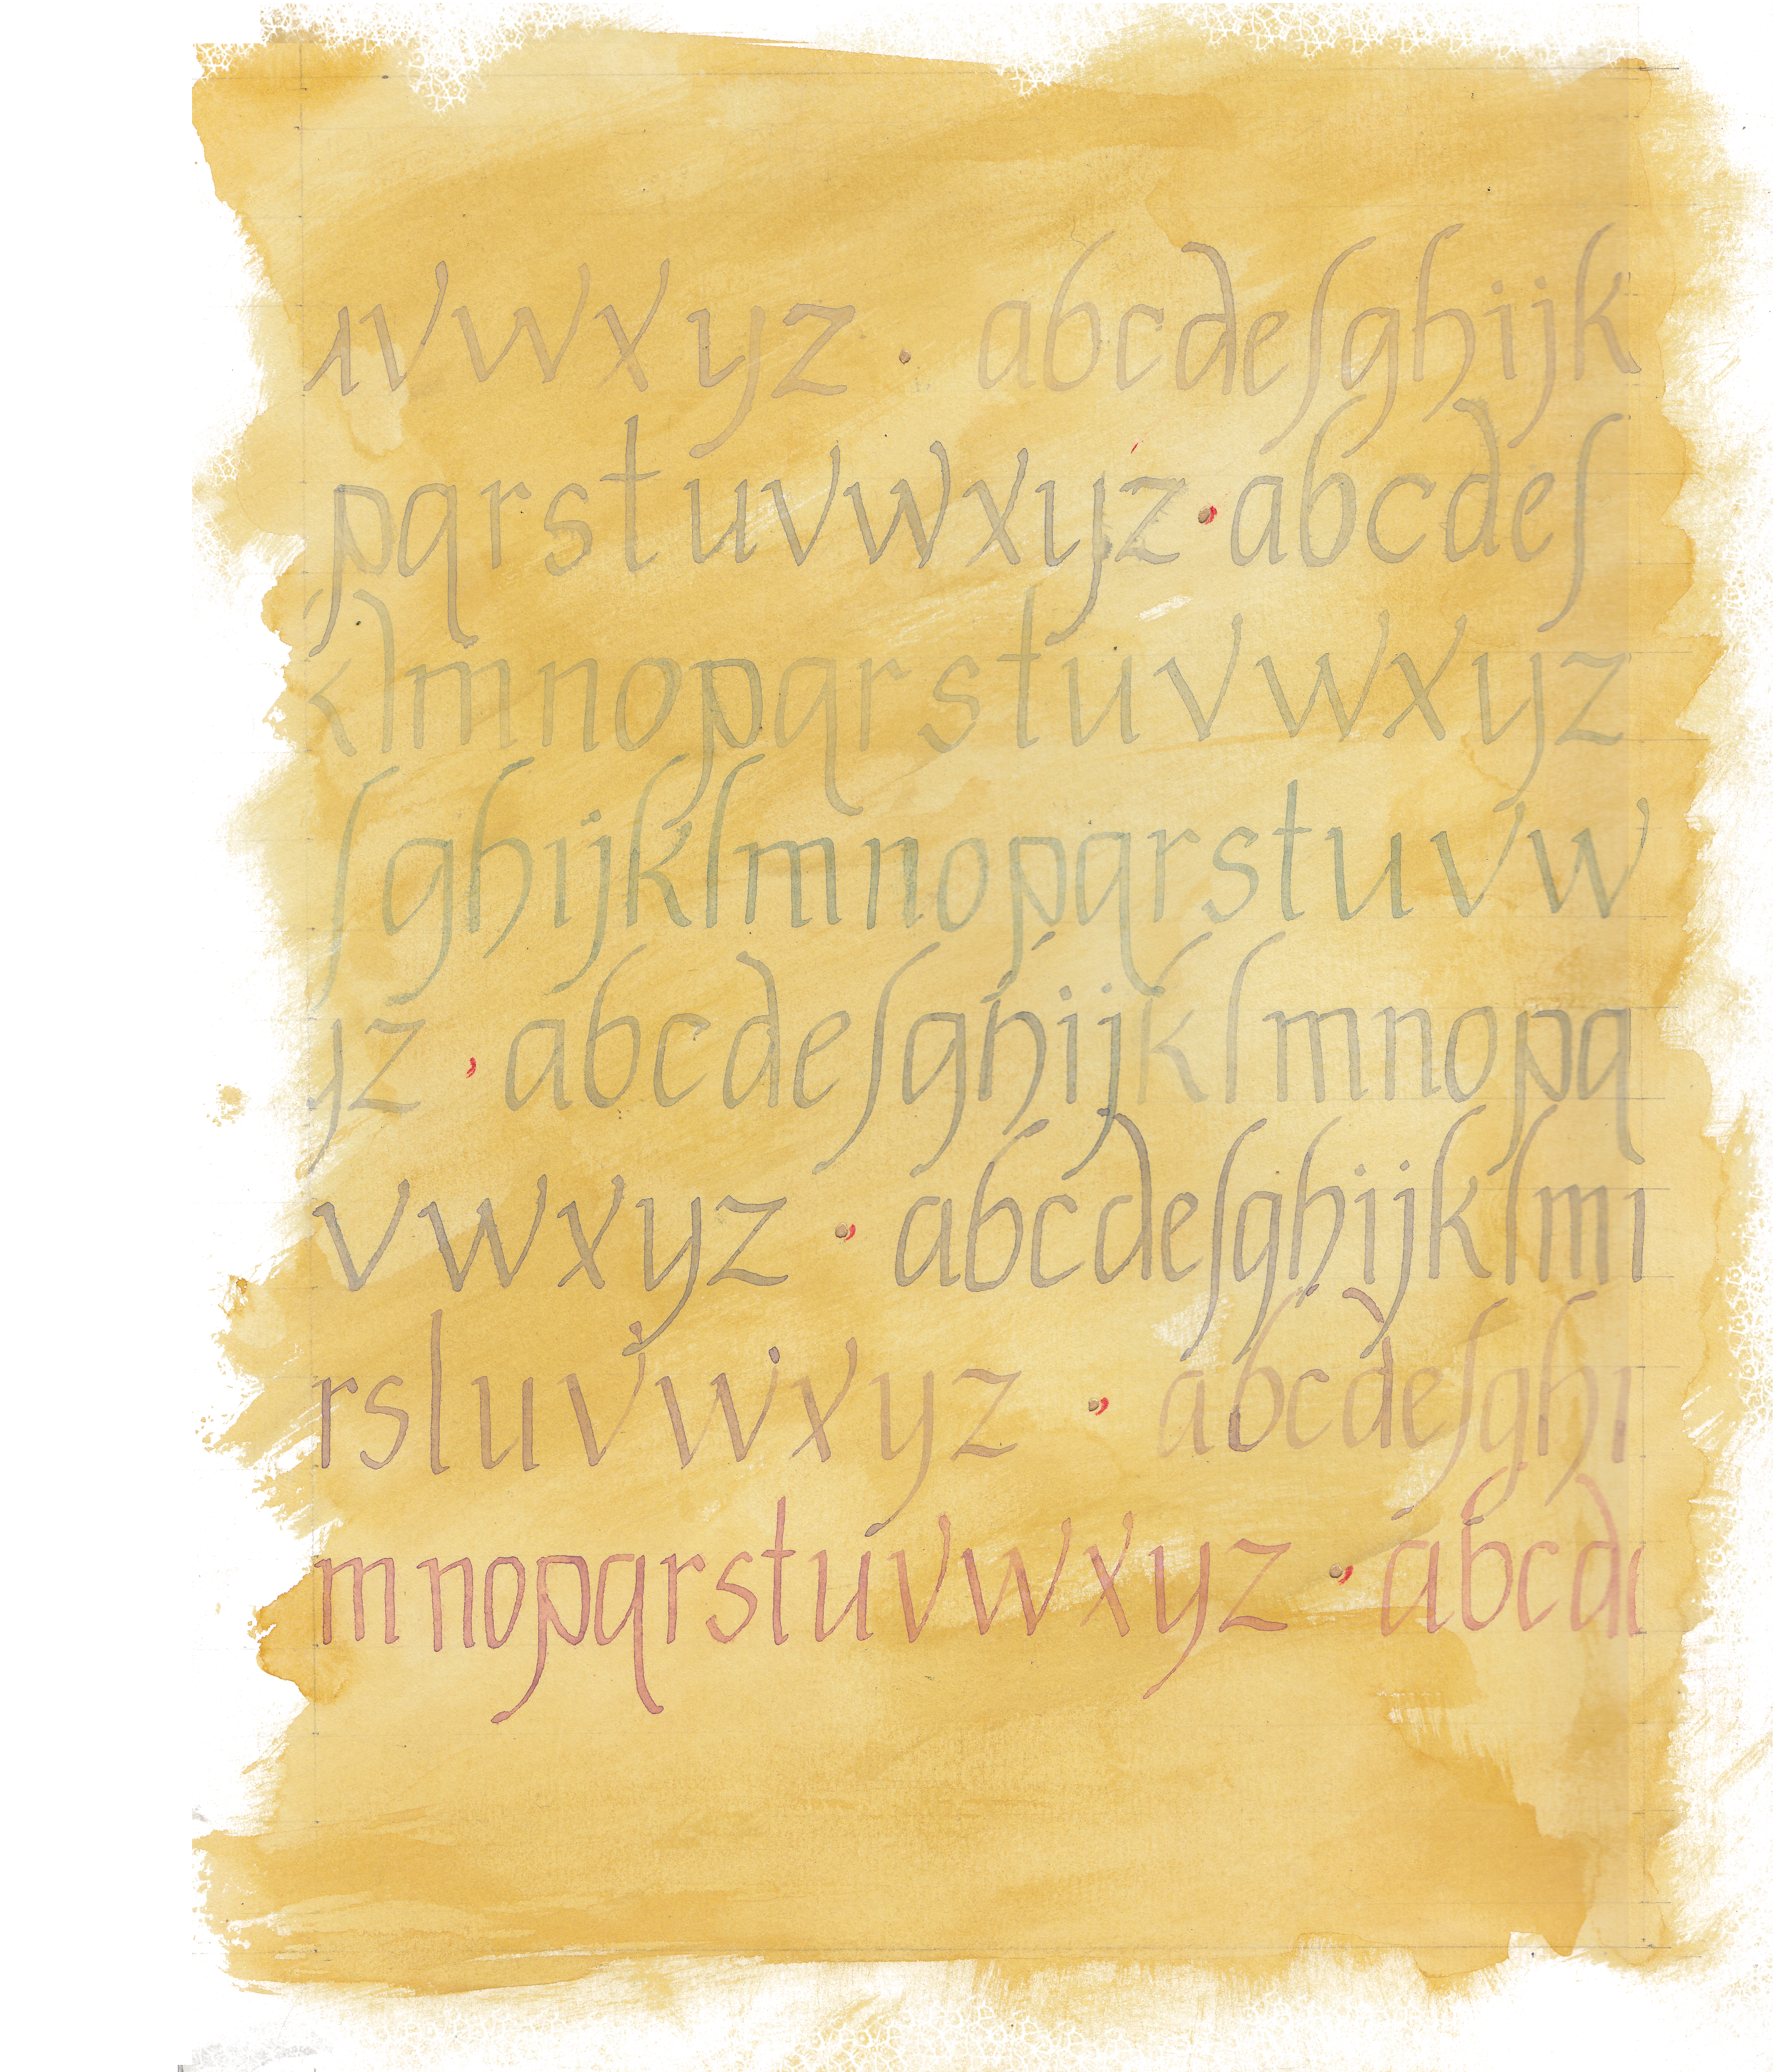 uvwxyz · abcdefghijk
pqrstuvwxyz · abcdef
klmnopqrstuvwxyz
fghijklmnopqrstuvw
yz · abcdefghijklmnopq
vwxyz · abcdefghijklm
rstuvwxyz · abcdefghi
mnopqrstuvwxyz · abcd